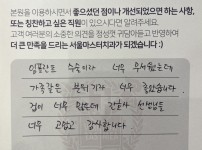 본원을 이용하시면서 좋으셨던 점이나 개선되었으면 하는 사항,
또는 칭찬하고 싶은 직원이 있으시다면 알려주세요.
고객 여러분의 소중한 의견을 정성껏 귀담아듣고 반영하여
더 큰 만족을 드리는 서울마스터치과가 되겠습니다 :)
임플란트 수술이라 너무 무서웠는데
가족같은 분위기가 너무 좋았습니다.
겁이 너무 많은데 간호사 선생님들
너무 고맙고 감사합니다